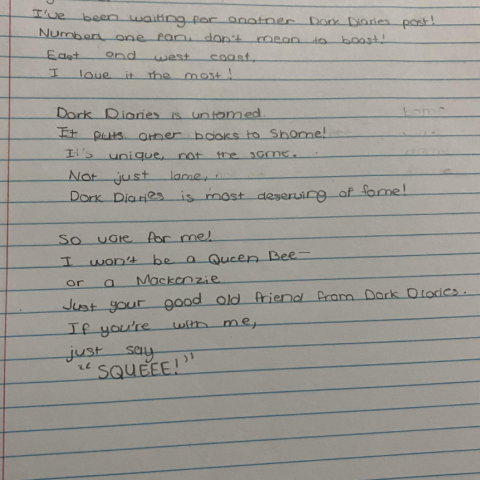 I've been waiting for another Dork Diaries part!
Number one fan, don't mean to boast!
East and west coast,
I love it the most!
Dork Diaries is untamed.
It puts other books to shame!
It's unique, not the same.
Not just lame,
Dork Diaries is most deserving of fame!
So vote for me!
I won't be a Queen Bee—
or a Mackenzie
Just your good old friend from Dork Diaries.
If you're with me,
just say
"“SQUEEE!”"